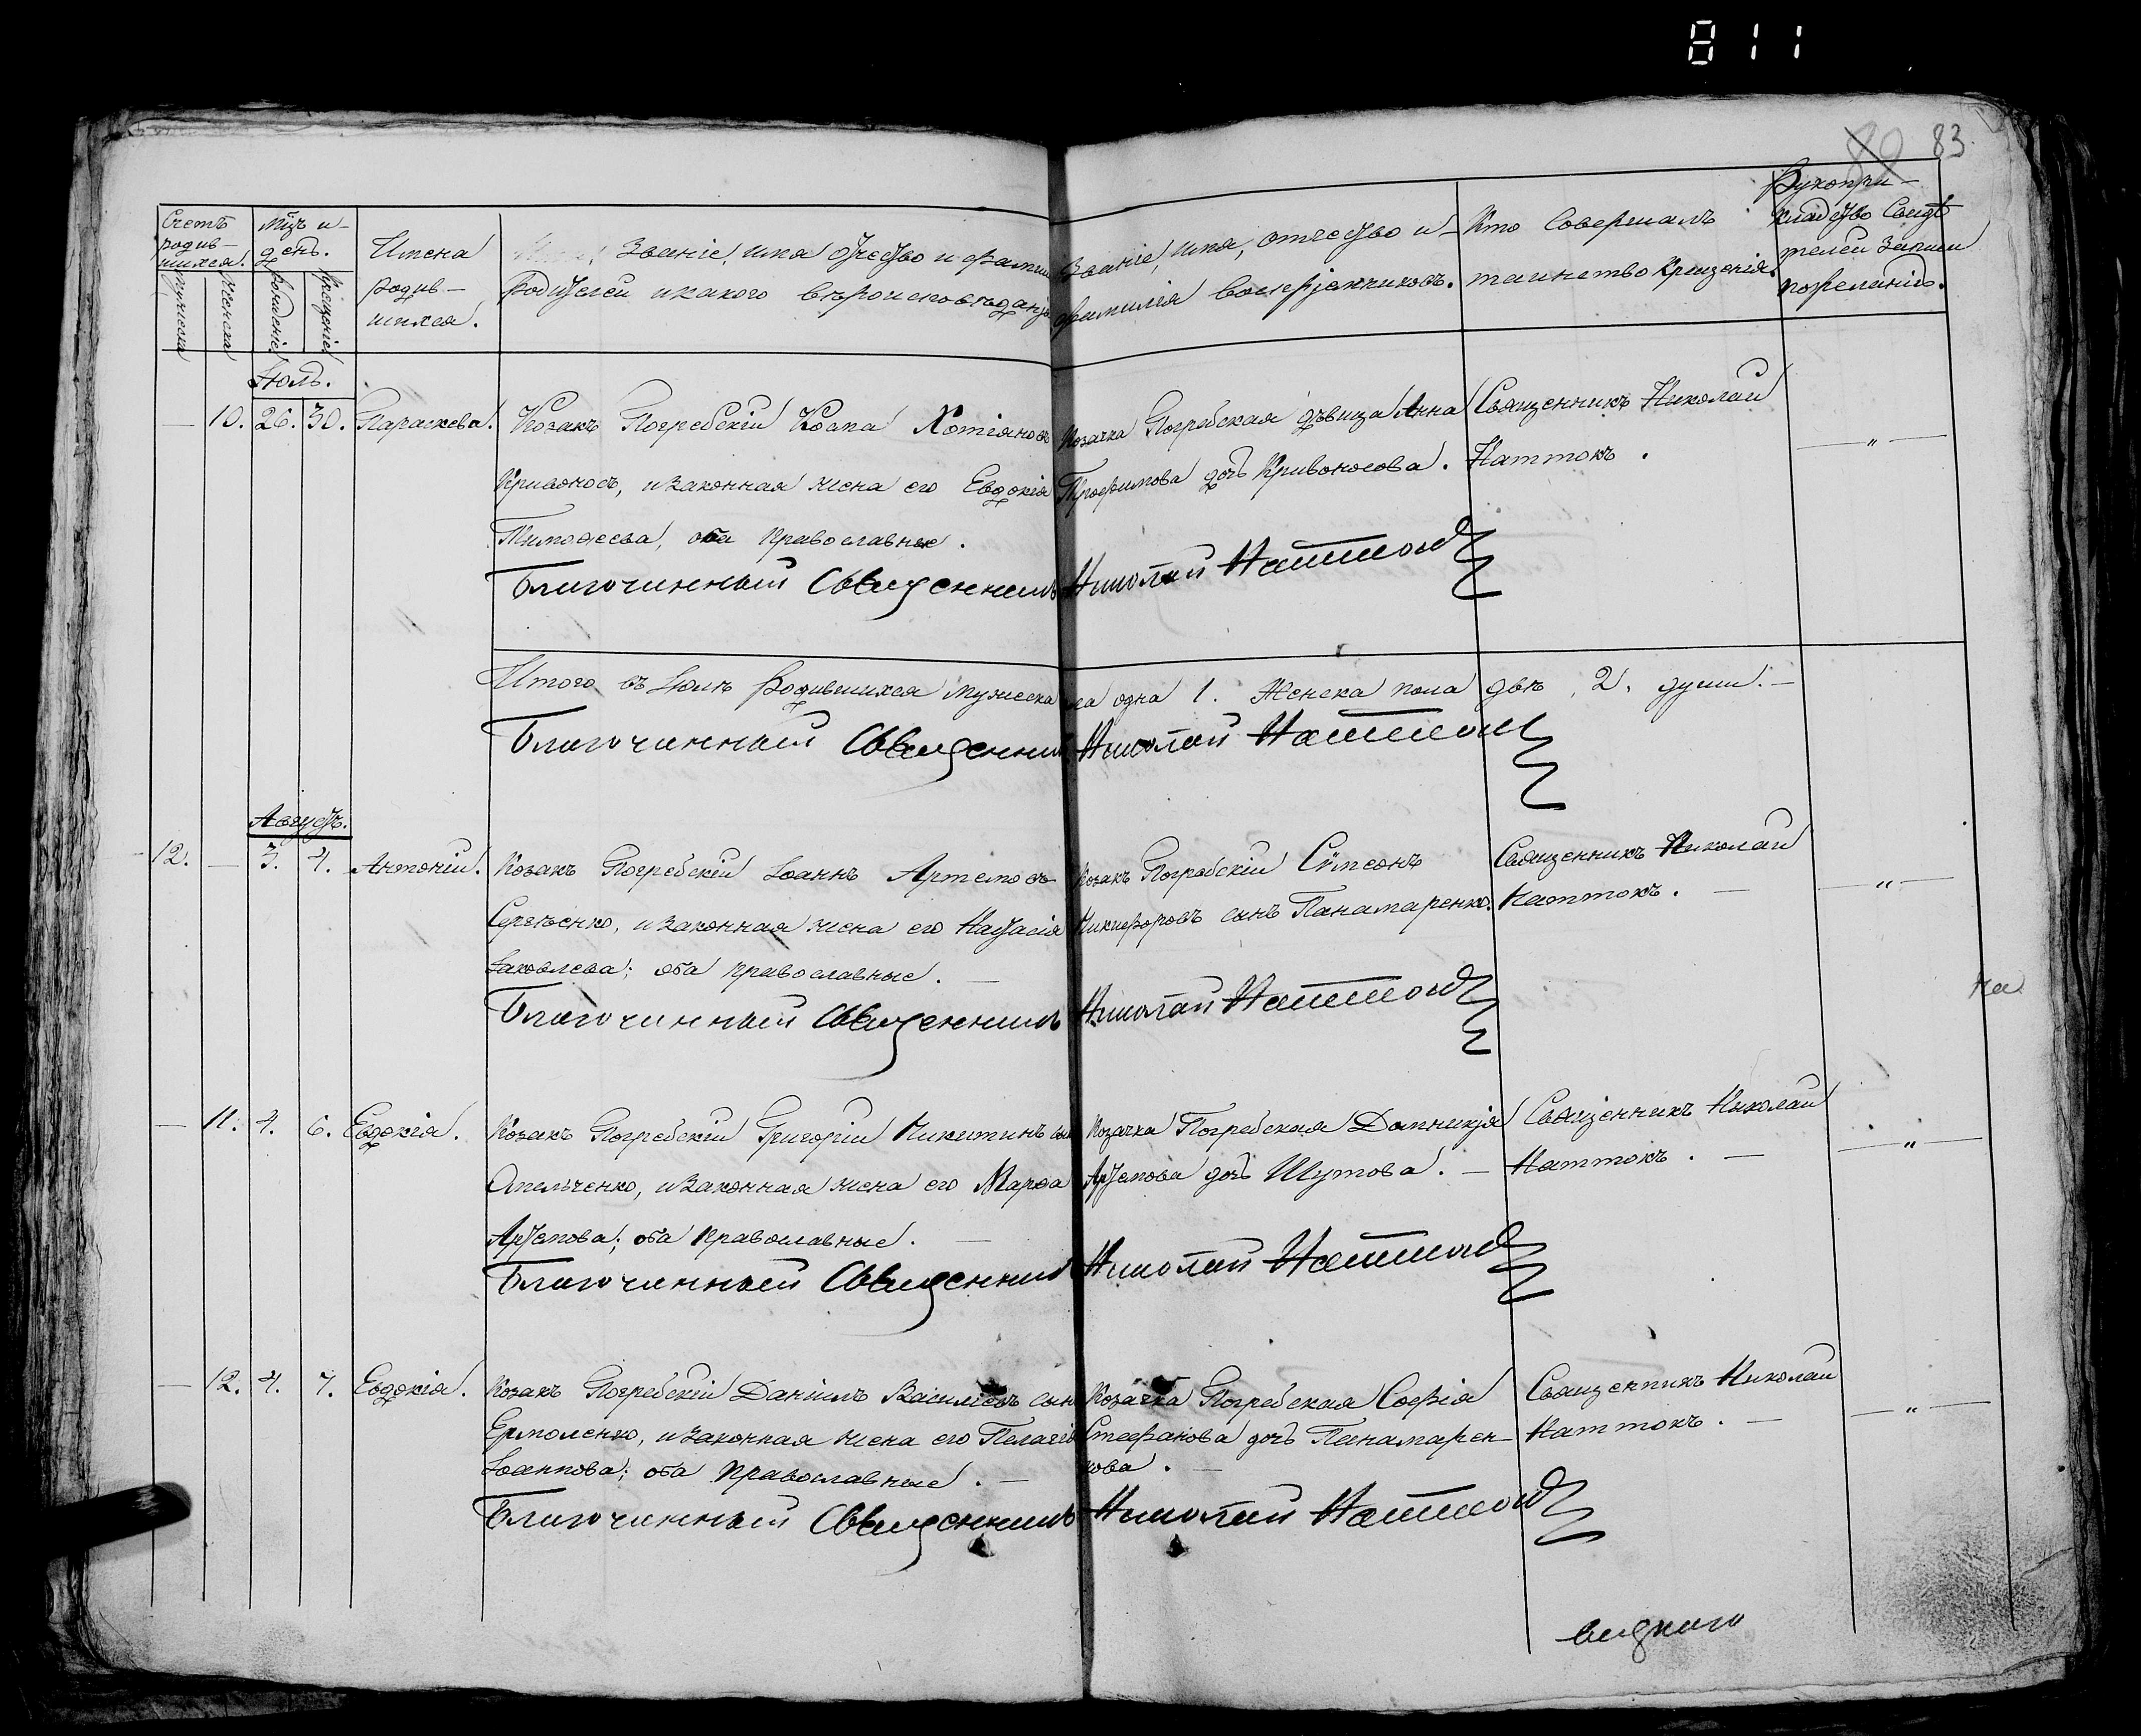 811
80 83
Счетъ родив-шихся.
Мужеска
Женска
Мцъ и день.
Рожденіе
Крещеніе
Имена родив-шихся.
Званіе, имя отчество и фамил
Родителей и какого вѣроисповѣданія
Званіе, имя, отчество и
фамилія воспріемниковъ.
Кто совершалъ
таинство крещенія.
Рукопри-
кладство свидѣ
телей записи
по желанію.
Іюль.
— 10. 26. 30. Параскева. Козакъ Погребскій Косма Хотіановъ Козачка Погребская дѣвица Анна Священникъ Николай — „ —
Кривоносъ, и законная жена его Евдокія Трофимова дочь Кривоносова. Наттокъ.
Тимофеева, оба православные.
Благочинный Священникъ Николай Наттокъ
Итого въ Іюлѣ родившихся мужеска ла одна 1. Женска пола двѣ, 2. души. —
Благочинный Священникъ Николай Наттокъ
Августъ.
12. — 3. 4. Антоній. Козакъ Погребскій Іоаннъ Артемовъ Козакъ Погребскій Сѵмеонъ Священникъ Николай — „ —
Сергѣенко, и законная жена его Настасія Никифоровъ сынъ Панамаренко. Наттокъ. —
Іаковлева; оба православные. —
Благочинный Священникъ Николай Наттокъ
— 11. 4. 6. Евдокія. Козакъ Погребскій Григорій Никитинъ сын Козачка Погребская Домникія Священникъ Николай — „ —
Омельченко, и законная жена его Марфа Артемова дочь Шутова. — Наттокъ. —
Артемова; оба православные. —
Благочинный Священник Николай Наттокъ
— 12. 4. 7. Евдокія. Козакъ Погребскій Даніилъ Василіевъ сын Козачка Погребская Софія Священникъ Николай — „ —
Ермоленко, и законная жена его Пелагія Стефанова дочь Панамарен- Наттокъ. —
Іоаннова; оба православные. — кова. —
Благочинный Священникъ Николай Наттокъ